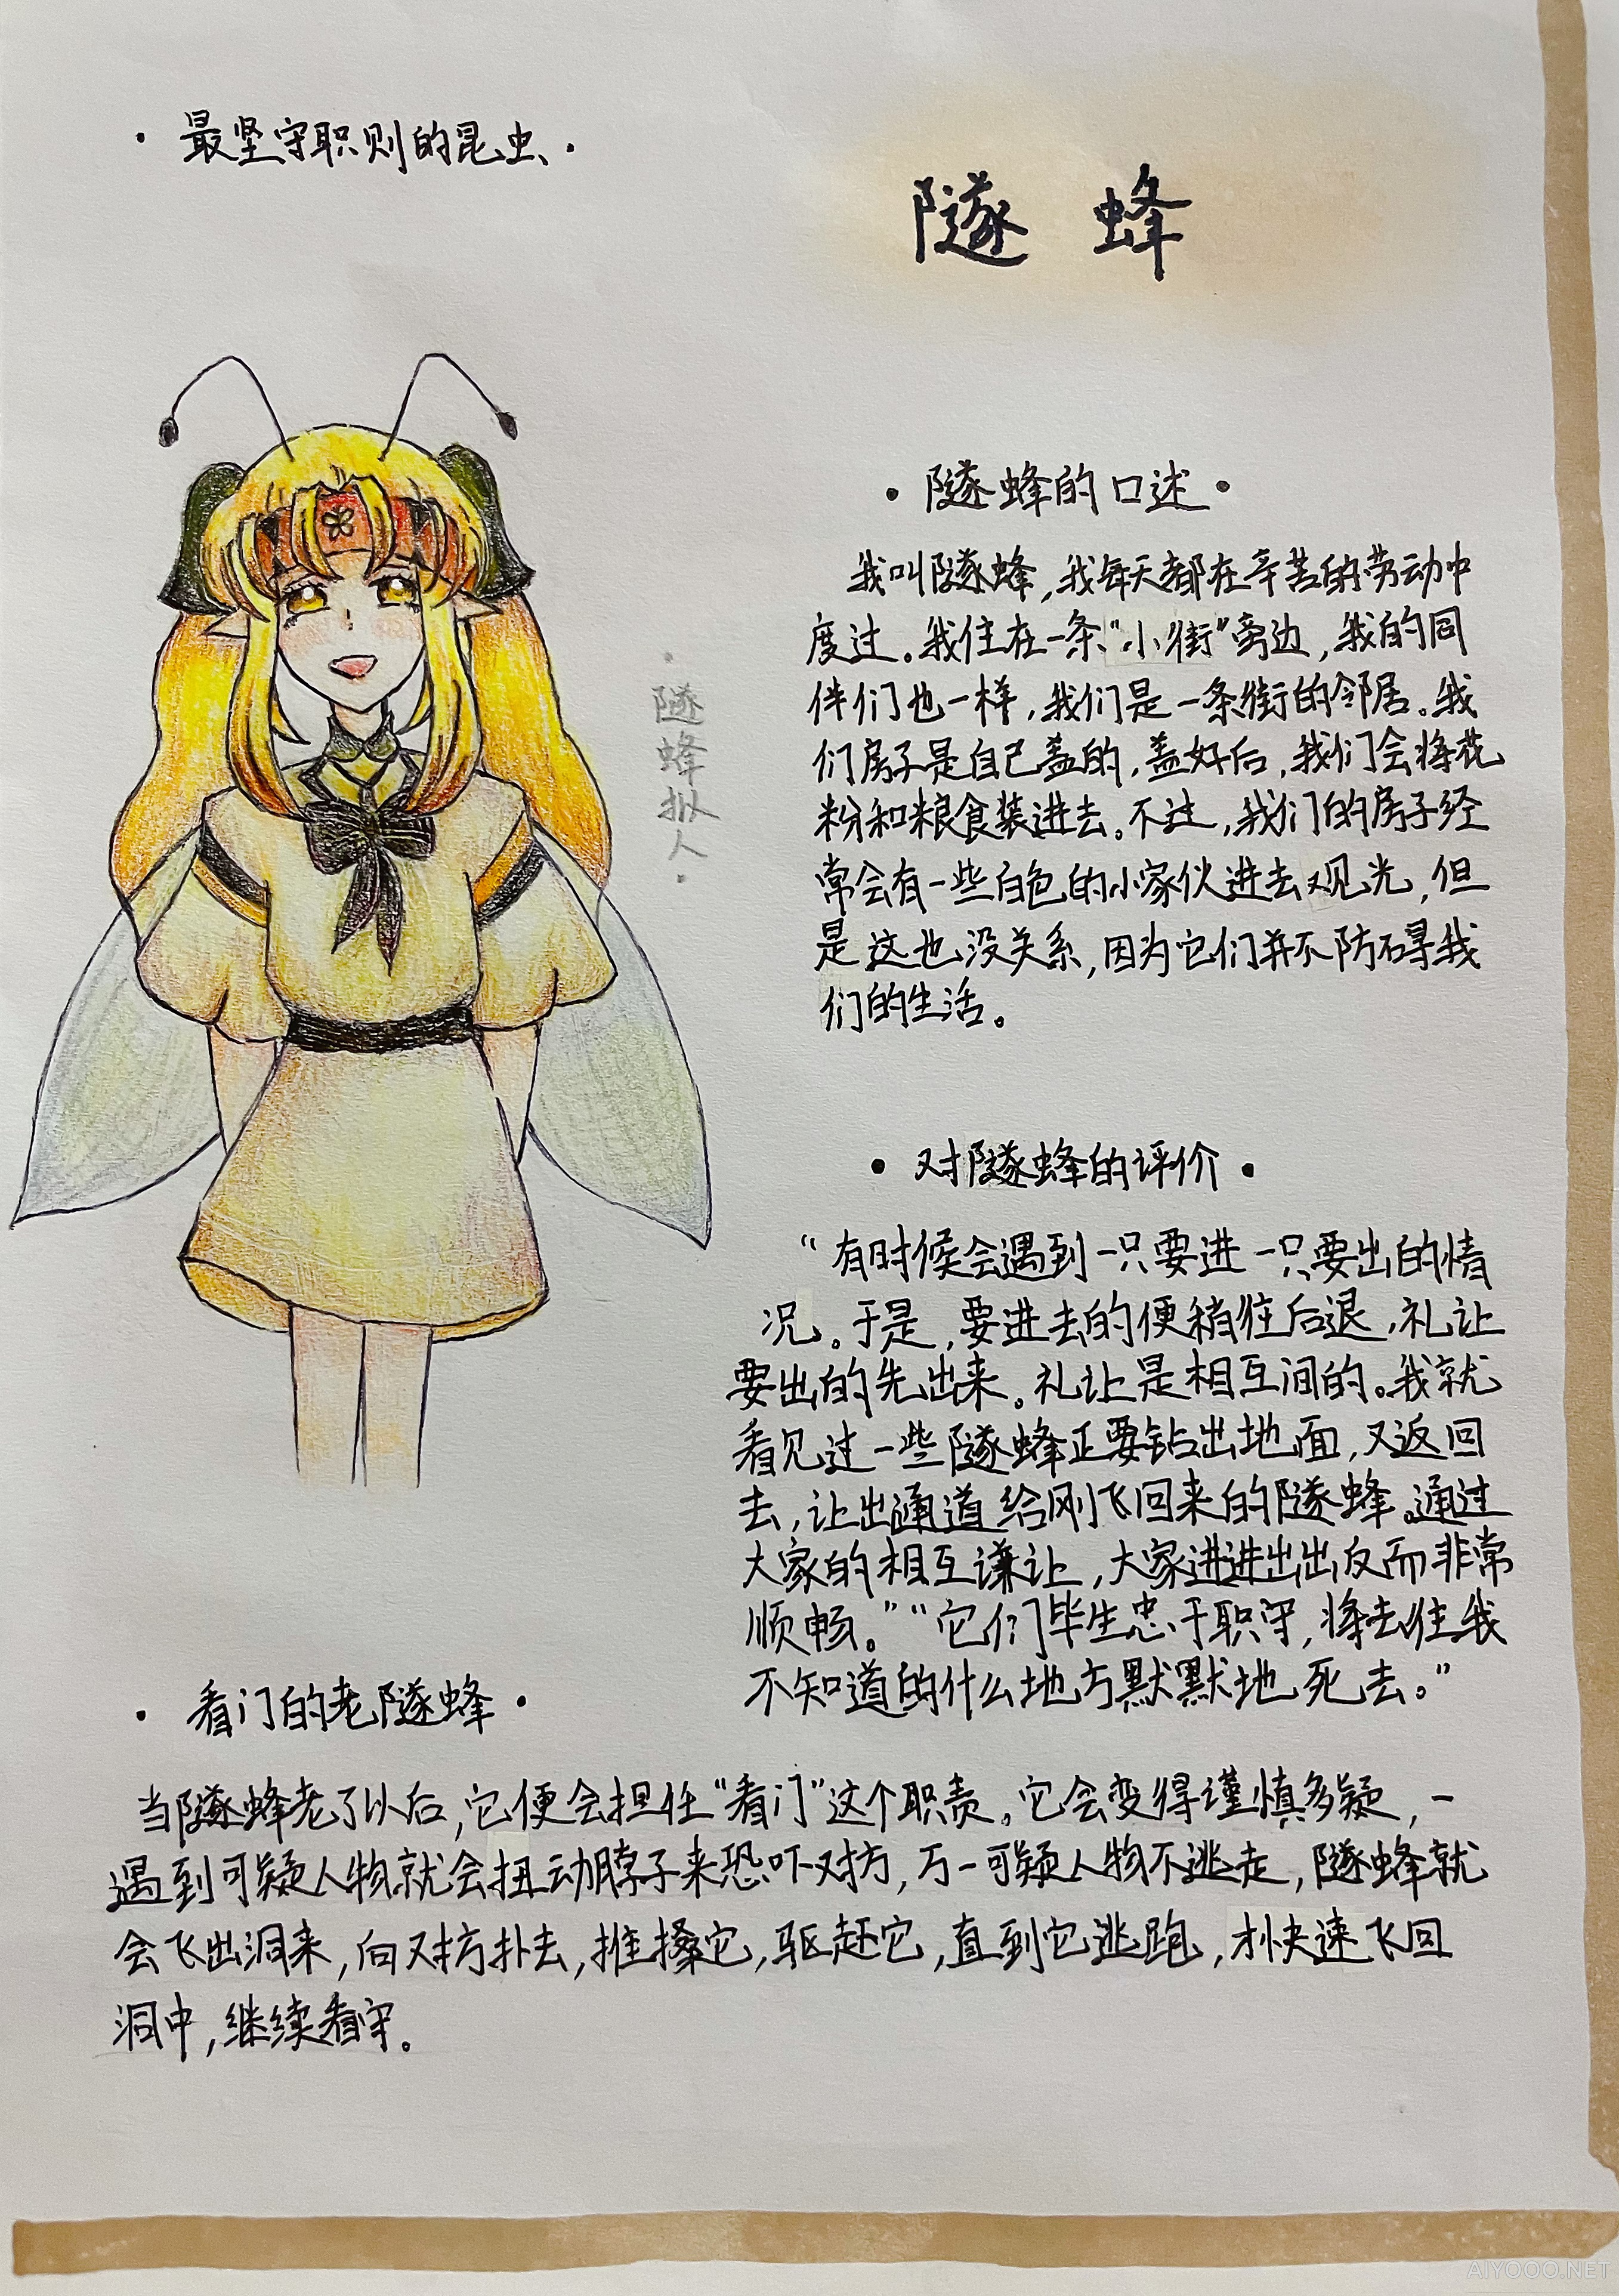 ·最坚守职则的昆虫·
隧蜂
·隧蜂的口述·
我叫隧蜂,我每天都在辛苦的劳动中
度过。我住在一条“小街”旁边,我的同
伴们也一样,我们是一条街的邻居。我
们房子是自己盖的,盖好后,我们会将花
粉和粮食装进去。不过,我们的房子经
常会有一些白色的小家伙进去观光,但
是这也没关系,因为它们并不防碍我
们的生活。
·隧蜂拟人·
·对隧蜂的评价·
“有时候会遇到一只要进一只要出的情
况。于是,要进去的便稍往后退,礼让
要出的先出来。礼让是相互间的。我就
看见过一些隧蜂正要钻出地面,又返回
去,让出通道给刚飞回来的隧蜂。通过
大家的相互谦让,大家进进出出反而非常
顺畅。”“它们毕生忠于职守,将去往我
不知道的什么地方默默地死去。”
·看门的老隧蜂·
当隧蜂老了以后,它便会担任“看门”这个职责。它会变得谨慎多疑,一
遇到可疑人物就会扭动脖子来恐吓对方,万一可疑人物不逃走,隧蜂就
会飞出洞来,向对方扑去,推搡它,驱赶它,直到它逃跑,才快速飞回
洞中,继续看守。
AIYOOO.NET